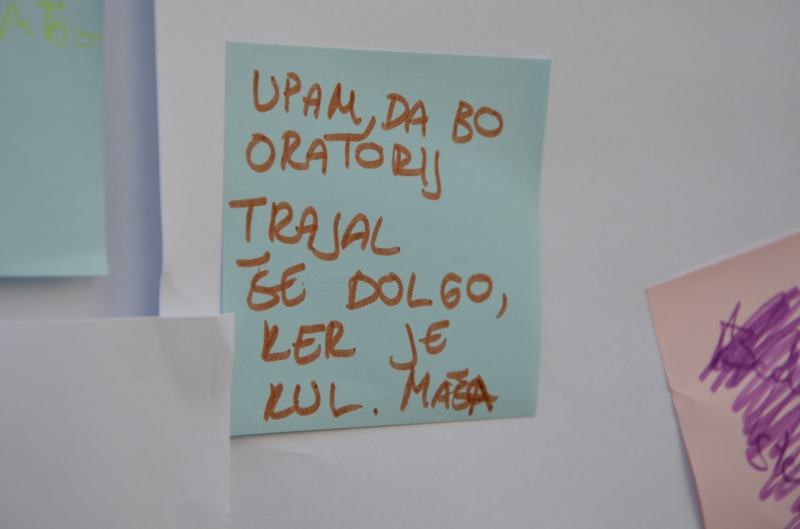 UPAM, DA BO
ORATORIJ
TRAJAL
ŠE DOLGO,
KER JE
KUL. MAŠA